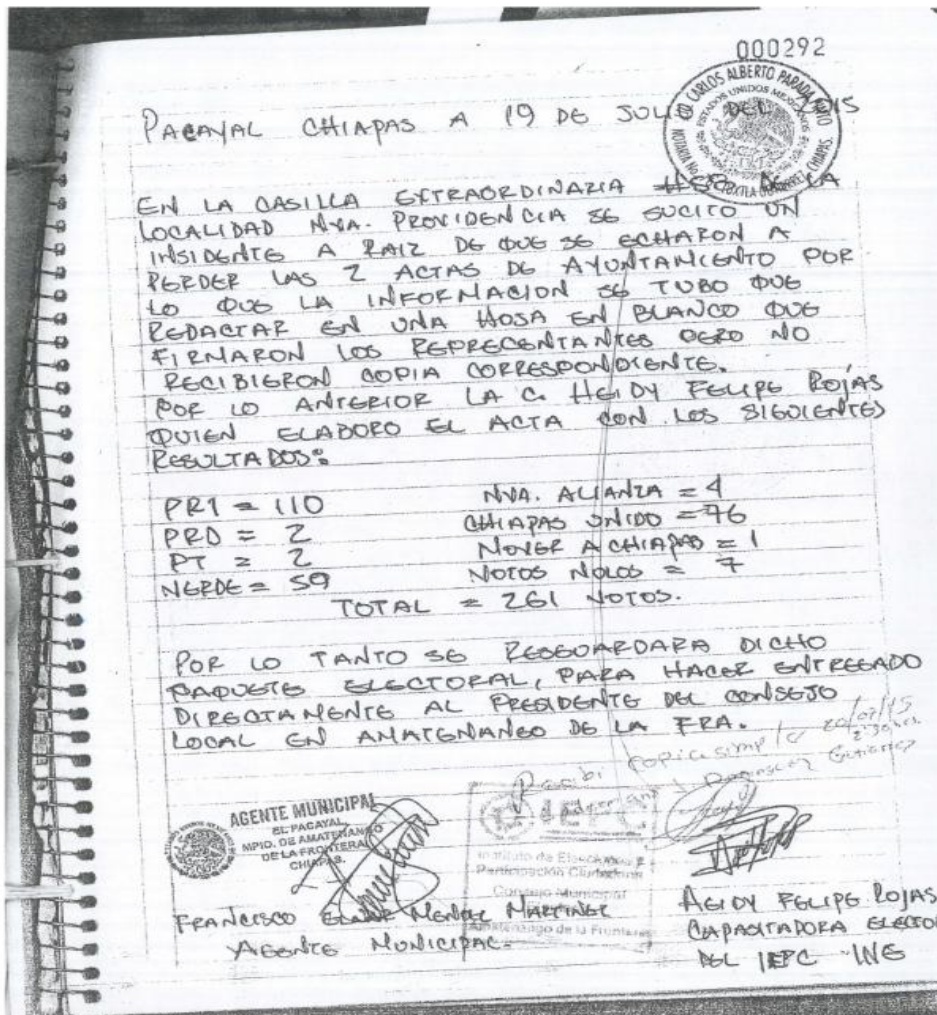 000292
LIC. CARLOS ALBERTO PARADA
ESTADOS UNIDOS MEXICANOS
NOTARIA No.
TUXTLA GUTIERREZ, CHIAPAS
PACAYAL CHIAPAS A 19 DE JULIO DEL 2015
EN LA CASILLA EXTRAORDINARIA DE LA
LOCALIDAD NVA. PROVIDENCIA SE SUCITO UN
INSIDENTE A RAIZ DE QUE SE ECHARON A
PERDER LAS 2 ACTAS DE AYUNTAMIENTO POR
LO QUE LA INFORMACION SE TUBO QUE
REDACTAR EN UNA HOJA EN BLANCO QUE
FIRMARON LOS REPRECENTANTES PERO NO
RECIBIERON COPIA CORRESPONDIENTE.
POR LO ANTERIOR LA C. HEIDY FELIPE ROJAS
QUIEN ELABORO EL ACTA CON LOS SIGUIENTES
RESULTADOS:
PRI = 110 NVA. ALIANZA = 4
PRD = 2 CHIAPAS UNIDO = 76
PT = 2 MOVER A CHIAPAS = 1
VERDE = 59 VOTOS NULOS = 7
TOTAL = 261 VOTOS.
POR LO TANTO SE RESGUARDARA DICHO
PAQUETE ELECTORAL, PARA HACER ENTREGADO
DIRECTAMENTE AL PRESIDENTE DEL CONSEJO
LOCAL EN AMATENANGO DE LA FRA.
Recibi copia simple 20/07/15
2:30
Gutierrez
AGENTE MUNICIPAL
EL PACAYAL,
MPIO. DE AMATENANGO
DE LA FRONTERA
CHIAPAS.
Instituto de Elecciones y
Participación Ciudadana
Consejo Municipal
Amatenango de la Frontera
FRANCISCO MENDEZ MARTINEZ
AGENTE MUNICIPAL.
HEIDY FELIPE ROJAS
CAPACITADORA ELECTO
DEL IEPC - INE